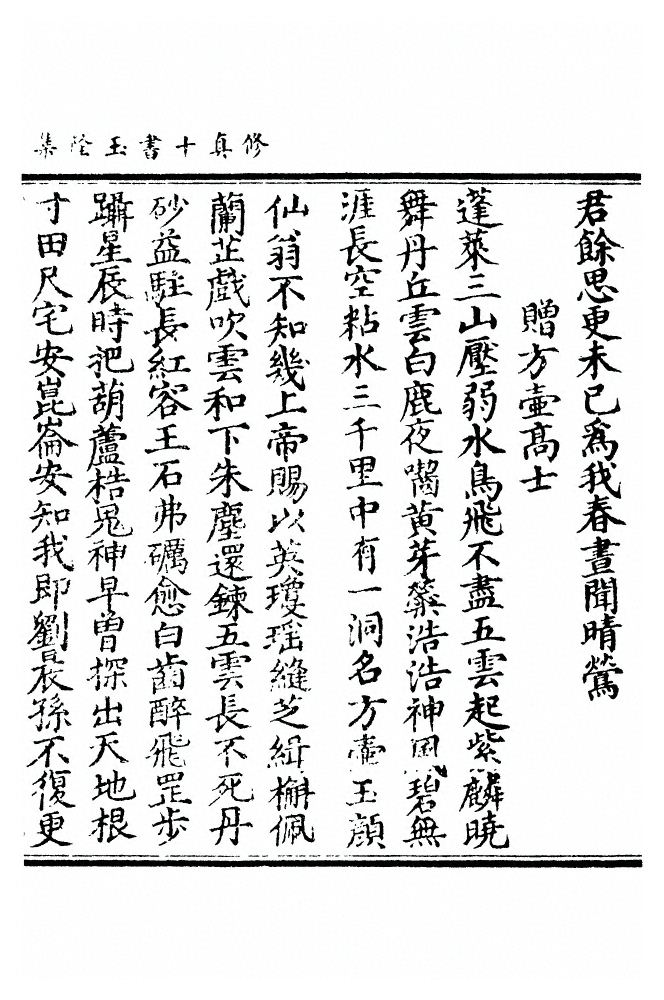 修真十書玉隆集
君餘思更未已爲我春晝聞晴鶯
贈方壺高士
蓬萊三山壓弱水鳥飛不盡五雲起紫麟曉
舞丹丘雲白鹿夜嚙黃芽蘂浩浩神風碧無
涯長空粘水三千里中有一洞名方壺玉顔
仙翁不知幾上帝賜以英瓊瑶縫芝緝槲佩
蘭芷戲吹雲和下朱塵還鍊五雲長不死丹
砂益駐長紅容王石弗礪愈白齒醉飛罡步
躡星辰時把葫蘆梏鬼神早曾探出天地根
寸田尺宅安崑崙安知我即劉晨孫不復更